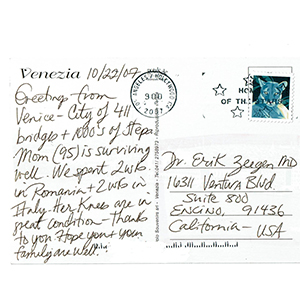 Venezia 10/22/07
Greetings from
Venice - City of 411
bridges + 1000's of steps
Mom (95) is surviving
well. We spent 2 wks
in Romania + 2 wks in
Italy. Her Knees are in
great condition - thanks
to you. Hope you + your
family are well.
LOS ANGELES / HOLLYWOOD
900
2007
HO
OF THE STARS
Dr. Erik Zeegen MD
16311 Ventura Blvd
Suite 800
ENCINO, 91436
California -
USA